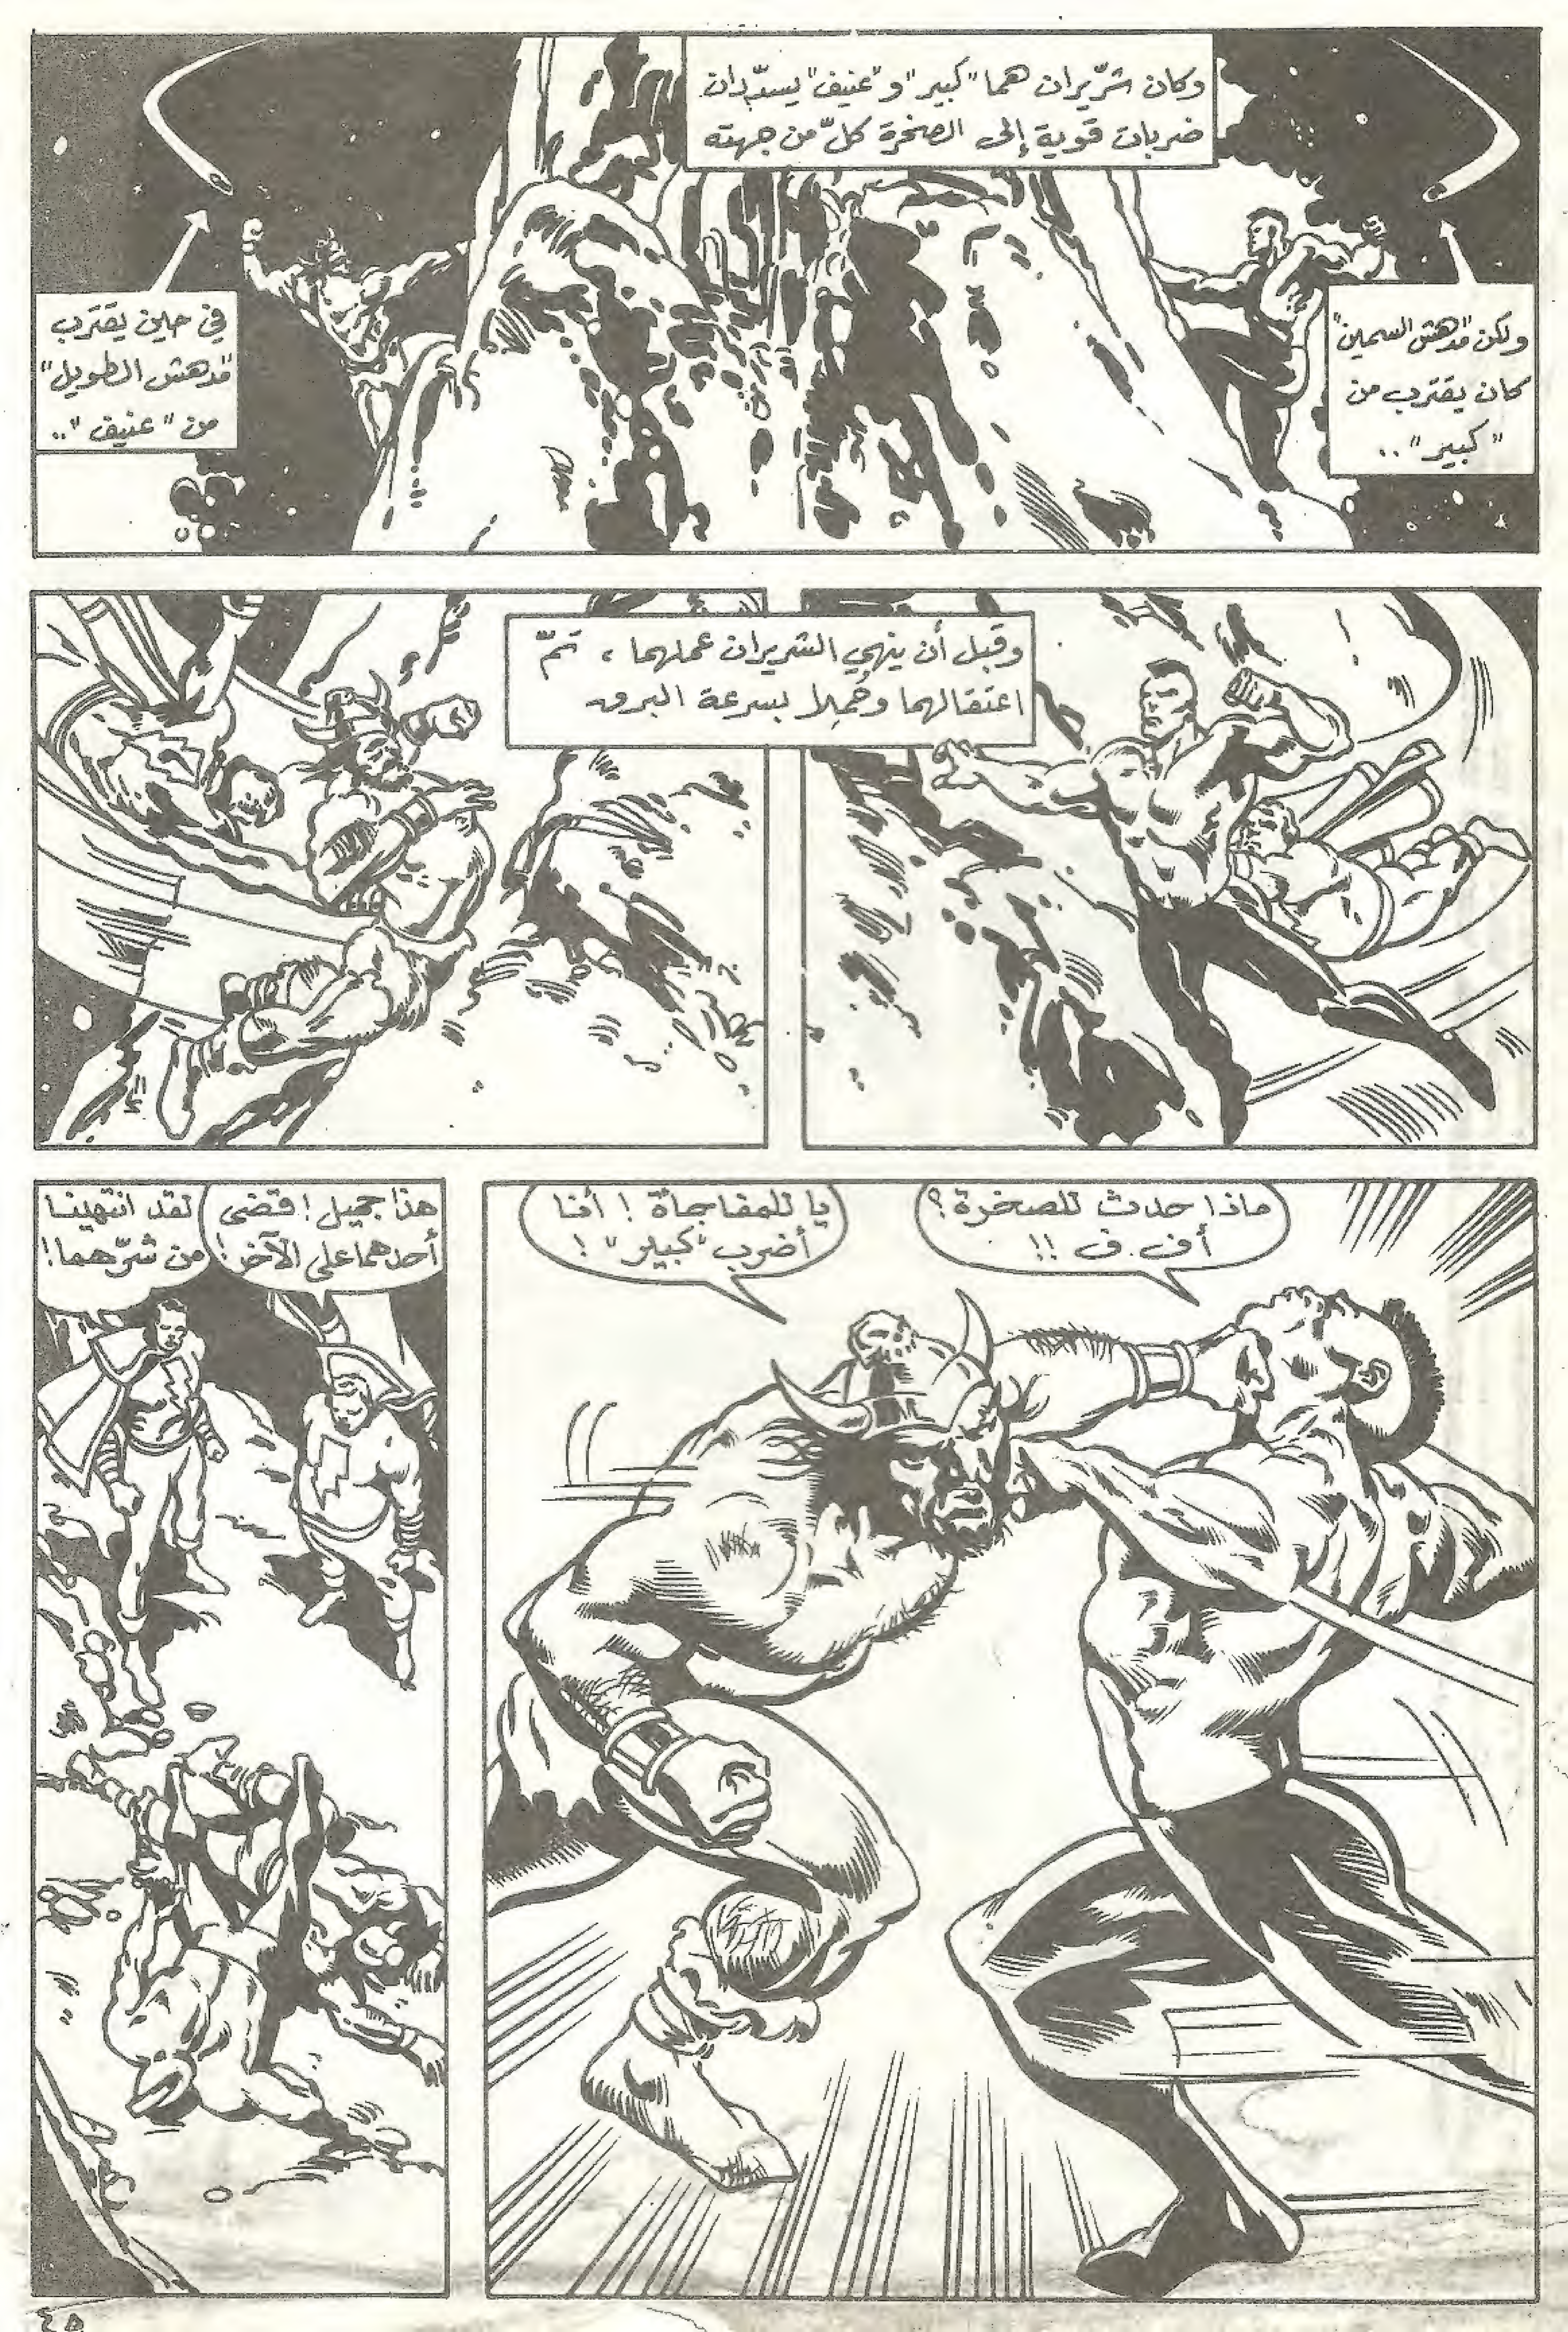 وكان شرّيران هما "كبير" و"عنيف" يسدّدان
ضربات قوية إلى الصخرة كلّ من جهته
ولكن "مدهش السمين"
كان يقترب من
"كبير"..
في حين يقترب
"مدهش الطويل"
من "عنيف"..
وقبل أن ينهي الشريران عملهما، تمّ
اعتقالهما وحُمِلا بسرعة البرق
ماذا حدث للصخرة؟
أف.ف !!
يا للمفاجأة! أنا
أضرب "كبير"!
هذا جميل! قضى
أحدهما على الآخر!
لقد انتهينا
من شرّهما!
٤٥